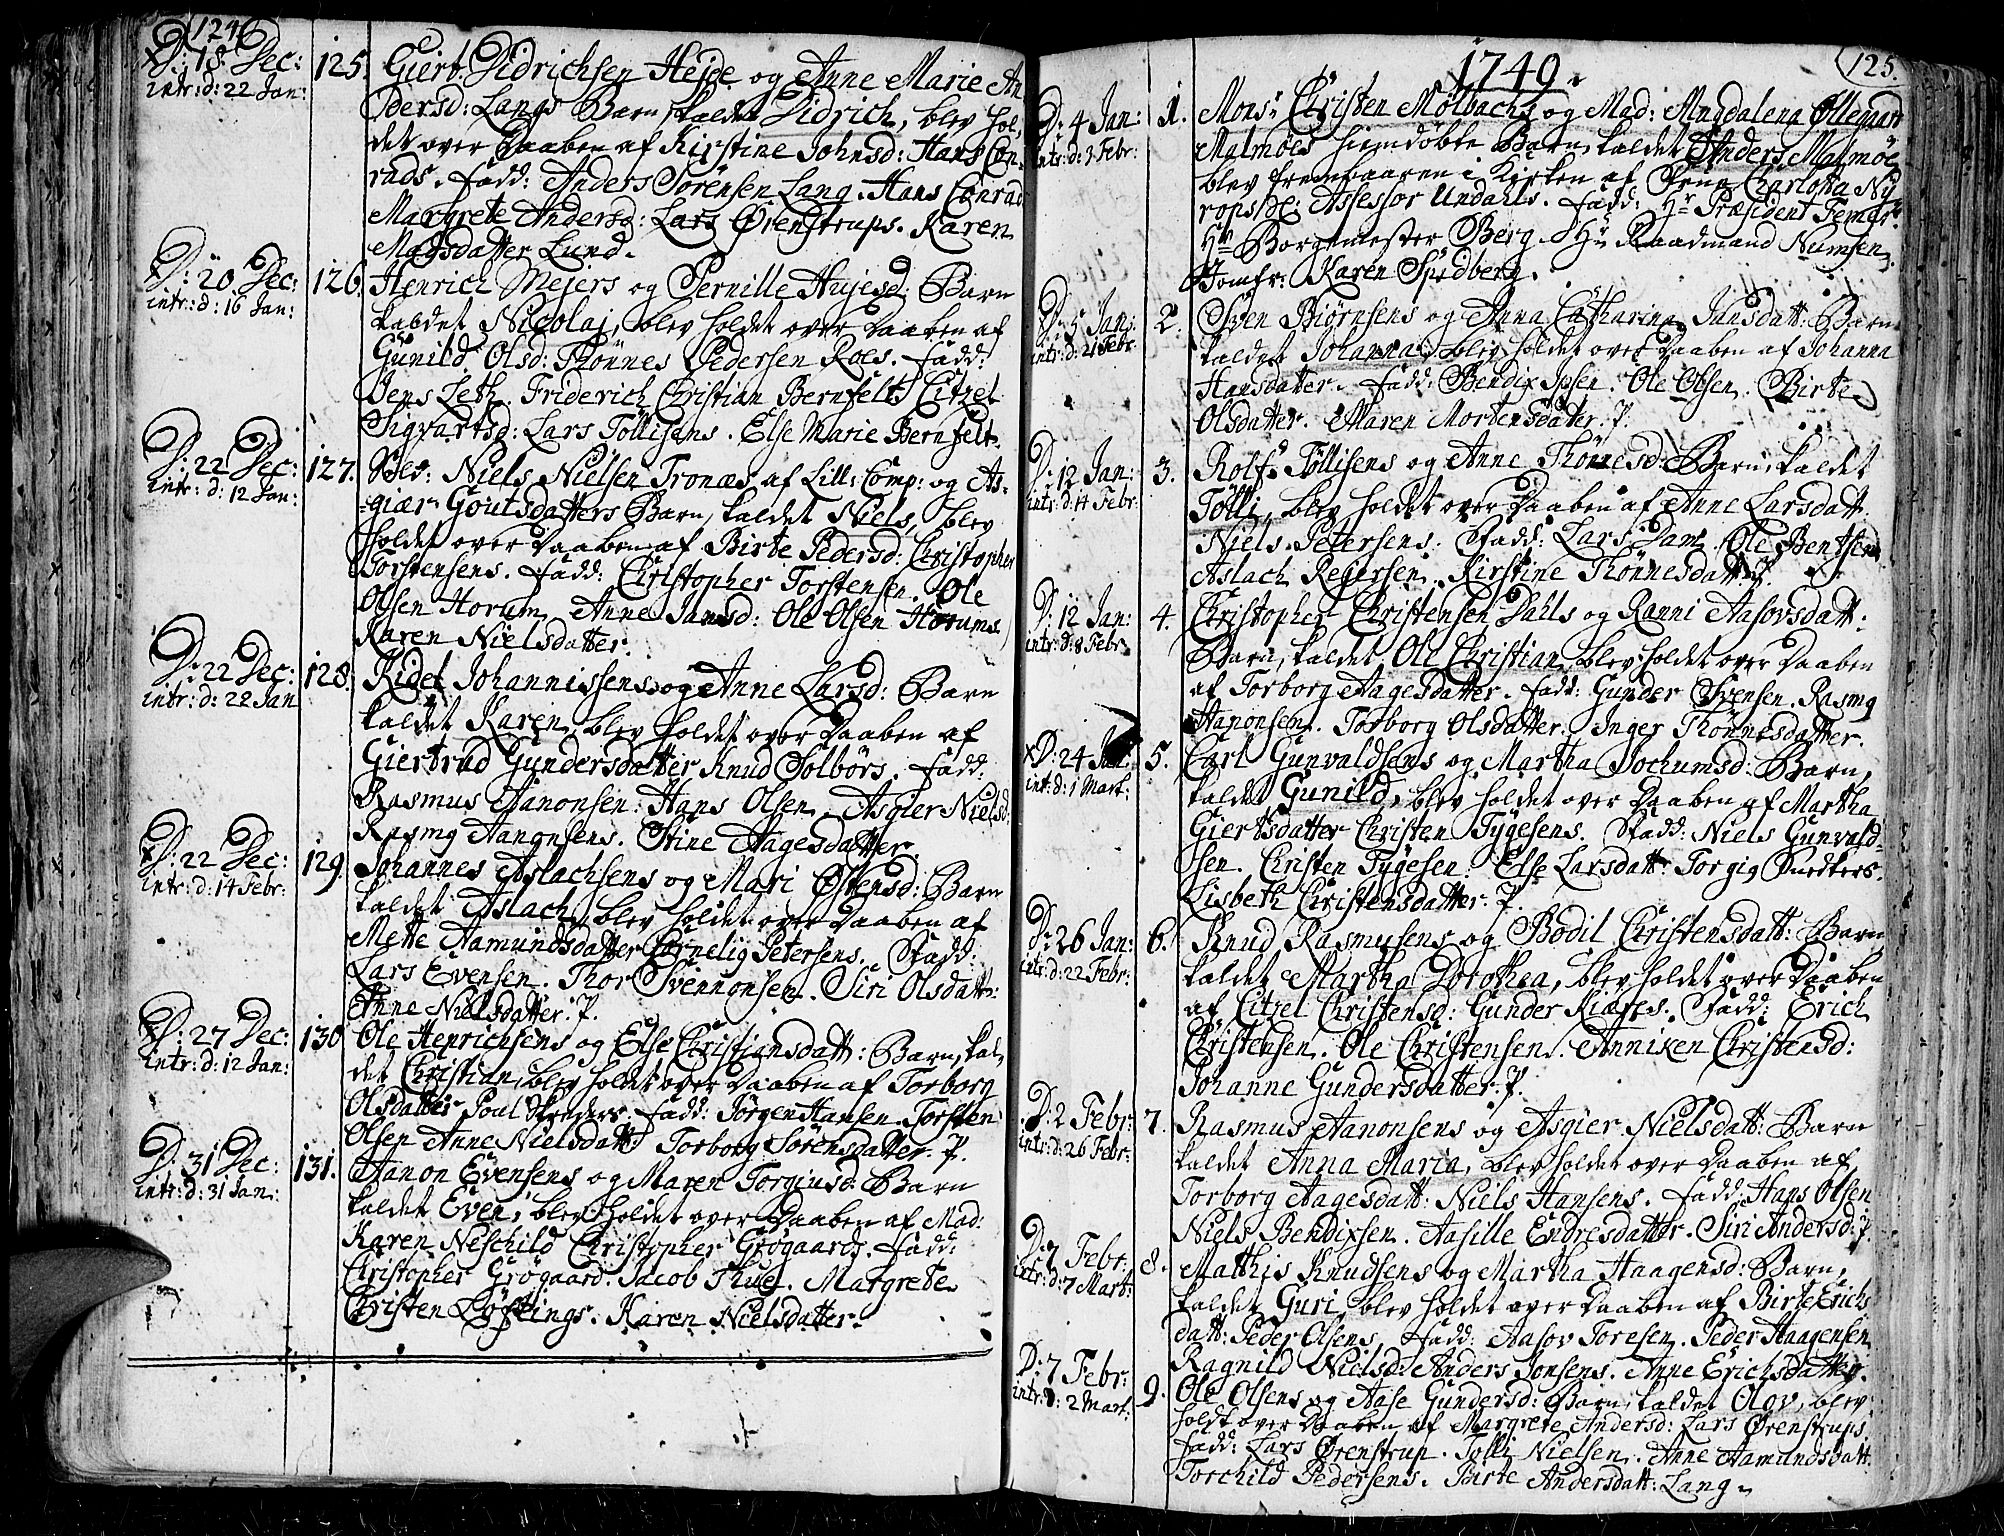 124.
D: 18 Dec:
intr: d: 22 Jan:
125. Giert Didrichsen Hejde og Anne Marie An
dersd: Langs Barn, kaldet Didrich, blev hol,
det over Daaben af Kirstine Johnsd: Hans Con,
rads. Fadd: Anders Sørensen Lang. Hans Conrad.
Margrete Andersd: Lars Ørenstrups. Karen
Madsdatter Lund.
D: 20 Dec:
intr: d: 16 Jan:
126. Henrich Mejers og Pernille Hujesd: Barn
kaldet Nicolaj, blev holdet over Daaben af
Gunild Olsd: Thønnes Pedersen Roes. Fadd:
Jens Leth. Friderich Christian Bernfelt. Citzel
Sigvartsd: Lars Töllisens. Else Marie Bernfelt.
D: 22 Dec:
intr: d: 12 Jan:
127. Niels Nielsen Tronæs af Lill: Comp: og As-
giær Goutsdatters Barn, kaldet Niels, blev
holdet over Daaben af Birte Pedersd: Christopher
Torstensens. Fadd: Christopher Torstensen. Ole
Olsen Horum. Anne Jansd: Ole Olsen Horums
Karen Nielsdatter.
D: 22 Dec:
intr: d: 22 Jan
128. Kidel Johannissens og Anne Larsd: Barn
kaldet Karen, blev holdet over Daaben af
Giertrud Gundersdatter Knud Solbörs. Fadd:
Rasmus Aanonsen. Hans Olsen. Asgier Nielsd:
Rasmg Aanonsens. Stine Aagesdatter.
D: 22 Dec:
intr: d: 14 Febr:
129. Johannes Aslachsens og Mari Østensd: Barn
kaldet Aslach, blev holdet over Daaben af
Mette Aamundsdatter Cornelig Petersens. Fadd:
Lars Evensen. Thor Svennonsen. Siri Olsdatt:
Anne Nielsdatter. P.
D: 27 Dec:
intr: d: 12 Jan:
130 Ole Henrichsens og Else Christiansdatt: Barn, kal,
det Christian, blev holdet over Daaben af Torborg
Olsdatter Poul Skreders. Fadd: Jørgen Hansen. Torsten
Olsen Anne Nielsdatt: Torborg Sörensdatter. P.
D: 31 Dec:
intr: d: 31 Jan:
131. Aanon Evensens og Maren Torgiusd: Barn
kaldet Even, blev holdet over Daaben af Mad:
Karen Neschild Christopher Grøgaards. Fadd:
Christopher Grøgaard. Jacob Thue. Margrete
Christen Löftings. Karen Nielsdatter.
125.
1749.
D: 4 Jan:
intr: d: 3 Febr:
1. Monsr Christen Mølbachs og Mad: Magdalena Øllegaard
Malmöes hiemdöbte Barn, kaldet Anders Malmöe,
blev frembaaren i Kirken af Frue Charlotta Ny
rops Assessor Undahls. Fadd: Hr Præsident Femer.
Hr Borgemester Berg. Hr Raadmand Numsen.
Jomfr: Karen Spidberg.
D: 5 Jan:
intr: d: 21 Febr
2. Sven Biørnsens og Anna Catharina Jansdatt: Barn
kaldet Johanna, blev holdet over Daaben af Johanna
Hansdatter. Fadd: Bendix Ipsen. Ole Olsen. Birte
Olsdatter. Maren Mortensdatter. P.
D: 12 Jan:
intr: d: 14 Febr:
3. Rolf Töllisens og Anne Thönnesd: Barn, kaldet
Tölli, blev holdet over Daaben af Anne Larsdatt.
Niels Petersens. Fadd: Lars Dam. Ole Bentsen.
Aslach Rejersen. Kirstine Thönnesdatt. P.
D: 12 Jan:
intr: d: 8 Febr
4. Christopher Christensen Dahls og Ranni Aasovsdatt:
Barn, kaldet Ole Christian, blev holdet over Daaben
af Torborg Aagesdatter. Fadd: Gunder Svensen. Rasmg
Aanonsen. Torborg Olsdatter. Inger Thönnesdatter.
D: 24 Jan:
intr: d: 1 Mart:
5. Carl Gunvaldsens og Martha Jochumsd: Barn,
kaldet Gunild, blev holdet over Daaben af Martha
Giertsdatter Christen Tygesens. Fadd: Niels Gunvald-
sen. Christen Tygesen. Else Larsdatt: Torgig Snedkers.
Lisbeth Christensdatter. P.
D: 26 Jan:
intr: d: 22 Febr:
6. Knud Rasmusens og Bodil Christensdatt: Barn,
kaldet Martha Dorothea, blev holdet over Daaben
af Citzel Christensd: Gunder Kiærs. Fadd: Erich
Christensen. Ole Christensen. Anniken Christensd:
Johanne Gundersdatter. P.
D: 2 Febr:
intr: d: 26 Febr:
7. Rasmus Aanonsens og Asgier Nielsdatt: Barn
kaldet Anna Maria, blev holdet over Daaben af
Torborg Aagesdatt: Niels Hansens. Fadd: Hans Olsen
Niels Bendixsen. Aasille Endresdatter. Siri Andersd: P.
D: 7 Febr:
intr: d: 7 Mart:
8. Mathis Knudsens og Martha Haagensd: Barn,
kaldet Guri, blev holdet over Daaben af Birte Erichs
datt: Peder Olsens. Fadd: Aasov Toresen. Peder Haagensen
Ragnild Nielsd: Anders Jonsens. Anne Erichsdatter.
D: 7 Febr:
intr: d: 2 Mart:
9. Ole Olsens og Aase Gundersd: Barn, kaldet Olov, blev
holdt over Daaben af Margrete Andersd: Lars Ørenstrups.
Fadd: Lars Ørenstrup. Tolli Nielsen. Anne Aamundsdatt.
Torchild Pedersens. Birte Andersdatt: Lang.